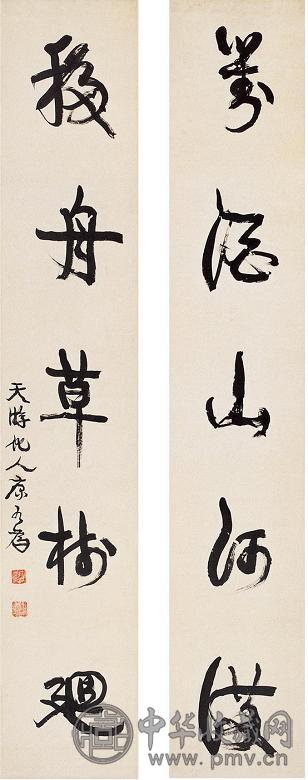 對酒山河滿
移舟草樹迴
天游化人康有為
中华收藏网
www.pmv.cn